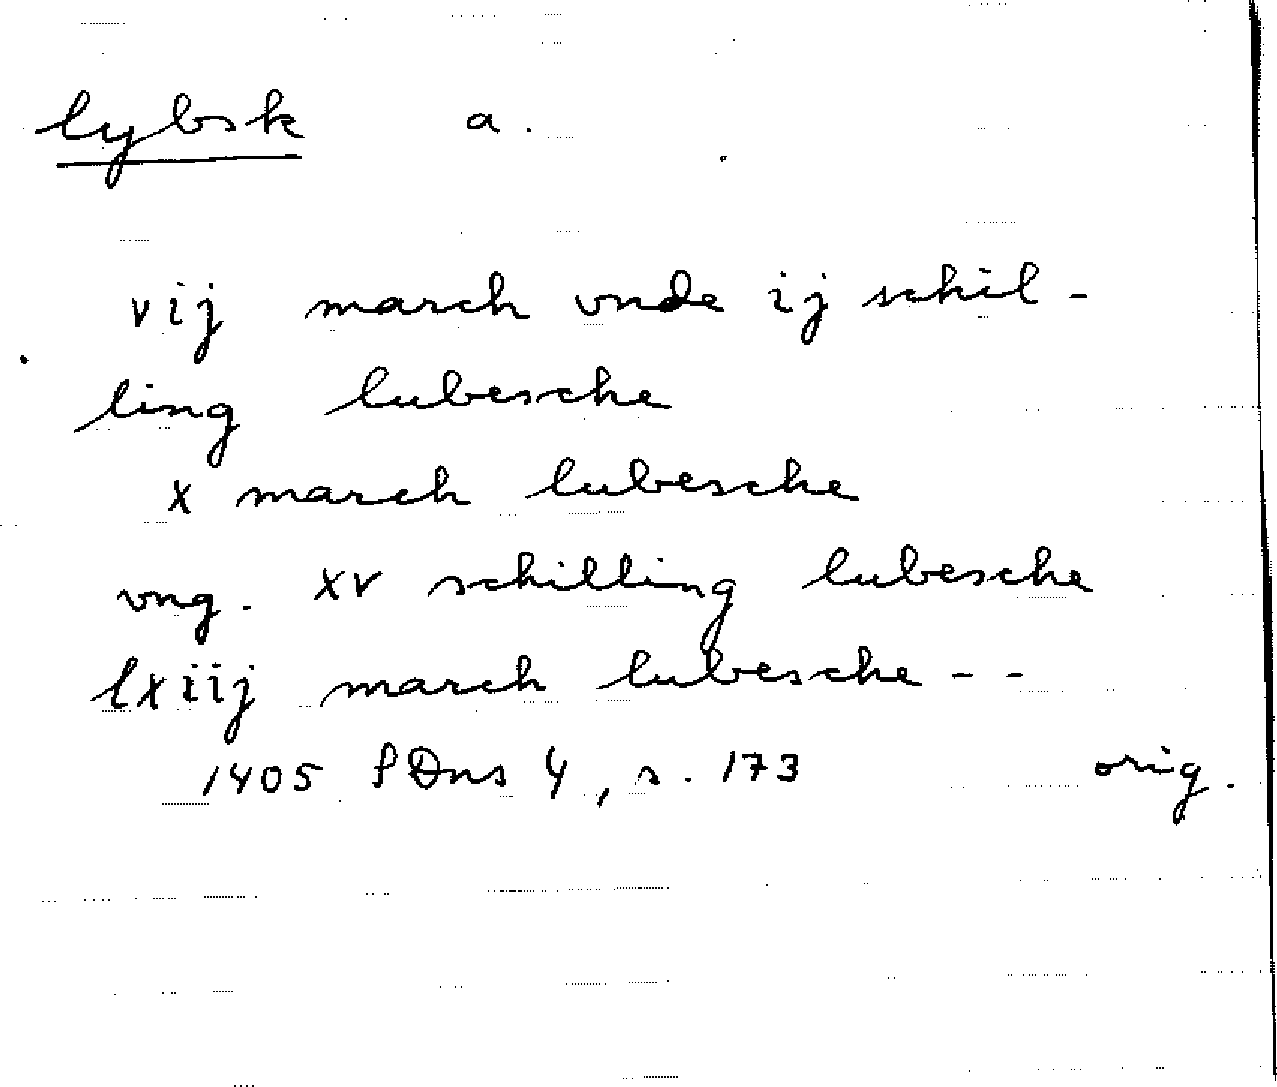 lybsk a.
vij march vnde ij schil-
ling lubesche
x march lubesche
vng. xv schilling lubesche
lxiij march lubesche - -
1405 SDns 4, s. 173 orig.